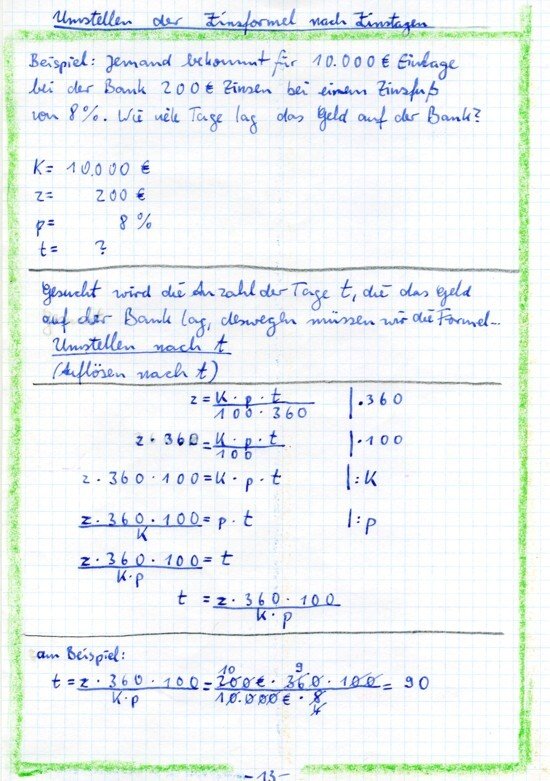 Umstellen der Zinsformel nach Zinstagen
Beispiel: Jemand bekommt für 10.000 € Einlage
bei der Bank 200 € Zinsen bei einem Zinsfuß
von 8%. Wie viele Tage lag das Geld auf der Bank?
K = 10.000 €
z = 200 €
p = 8 %
t = ?
Gesucht wird die Anzahl der Tage t, die das Geld
auf der Bank lag, deswegen müssen wir die Formel...
Umstellen nach t
(Auflösen nach t)
z = K · p · t / 100 · 360 | · 360
z · 360 = K · p · t / 100 | · 100
z · 360 · 100 = K · p · t | : K
z · 360 · 100 / K = p · t | : p
z · 360 · 100 / K · p = t
t = z · 360 · 100 / K · p
am Beispiel:
t = z · 360 · 100 / K · p = 200 € · 360 · 100 / 10.000 € · 8 = 90
- 13 -